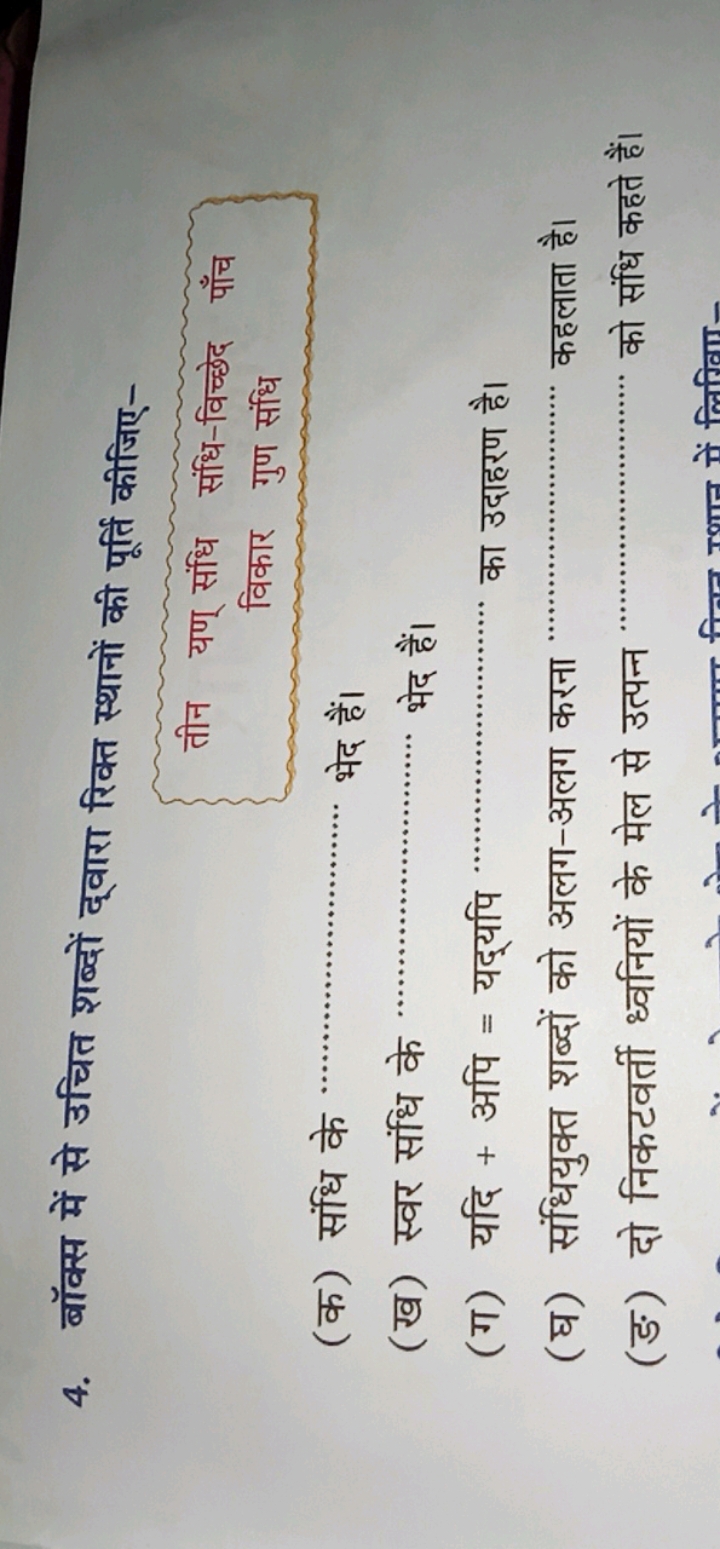 4. बॉक्स में से उचित शब्दों द्‌वारा रिक्त स्थानों की पूर्ति कीजिए–
तीन यण् संधि संधि-विच्छेद पाँच
विकार गुण संधि
(क) संधि के .............................. भेद हैं।
(ख) स्वर संधि के .............................. भेद हैं।
(ग) यदि + अपि = यद्‌यपि .............................. का उदाहरण है।
(घ) संधियुक्त शब्दों को अलग-अलग करना .............................. कहलाता है।
(ङ) दो निकटवर्ती ध्वनियों के मेल से उत्पन्न .............................. को संधि कहते हैं।